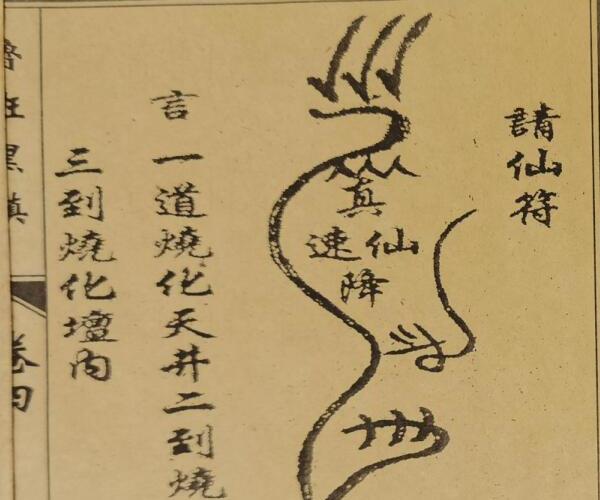 請仙符
真
仙
速
降
言一道燒化天井二到燒
三到燒化壇內
卷四